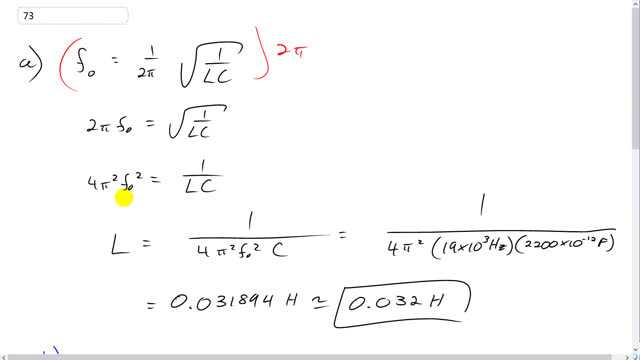 73
a) ( f₀ = 1/2π √(1/LC) ) 2π
2π f₀ = √(1/LC)
4π² f₀² = 1/LC
L = 1/(4π² f₀² C) = 1/(4π² (19×10³ Hz)(2200×10⁻¹² F))
= 0.031894 H ≃ 0.032 H